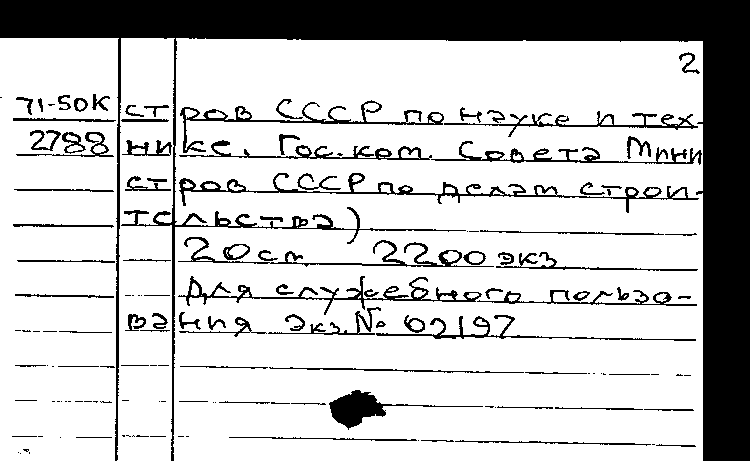 2
71-50К стров СССР по науке и тех-
2788 нике. Гос.ком. Совета Мини
стров СССР по делам строи-
тельства)
20см 2200 экз.
Для служебного пользо-
вания Экз.№ 02197